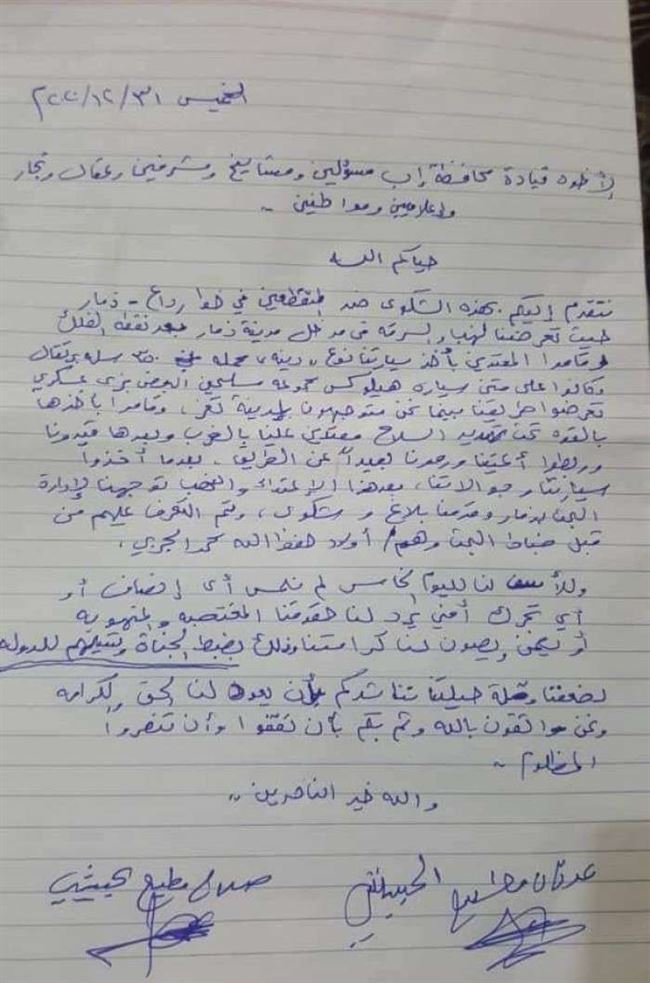 الخميس ٣١/١٢/٢٠٢٠م
الأخوة قيادة محافظة إب مسؤلين ومشايخ ومشرفين وعقال وتجار
وإعلاميين ومواطنين -
حياكم الله
نتقدم إليكم بهذه الشكوى ضد المتقطعين في خط رداع - ذمار
حيث تعرضنا لنهب والسرقه في مدخل مدينة ذمار بعد نقطه الفلك
وقاموا المعتدين بأخذ سيارتنا نوع، دينه، محمله سله برتقال
وكانوا على متن سياره هيلوكس مجموعه مسلحين البعض بزي عسكري
تعرضوا طريقنا بينما نحن متوجهون لمدينة تعز، وقاموا بأخذها
بالقوه تحت تهديد السلاح معتدين علينا بالضرب وبعدها قيدونا
وربطوا أعيننا ورمونا بعيداً عن الطريق. بعدما أخذوا
سيارتنا وجوالاتنا، بعد هذا الإعتداء والنهب توجهنا لإدارة
البحث بذمار وقدمنا بلاغ وشكوى، وتم التعرف عليهم من
قبل ضباط البحث وهم/ أولاد حفظ الله محمد الجربي.
وللأسف لنا لليوم الخامس لم نلمس أي إنصاف أو
أي تحرك أمني يرد لنا حقوقنا المغتصبه والمنهوبه
أو يصون لنا كرامتنا وذلك بضبط الجناة وتسليمهم للدوله
لضعفنا وقلة حيلتنا نناشدكم بأن يعود لنا الحق والكرامه
ونحن واثقون بالله وثم بكم بأن تقفوا وأن تنصروا
المظلوم -
والله خير الناصرين -
عدنان الحبيشي
صلاح مطيع الحبيشي